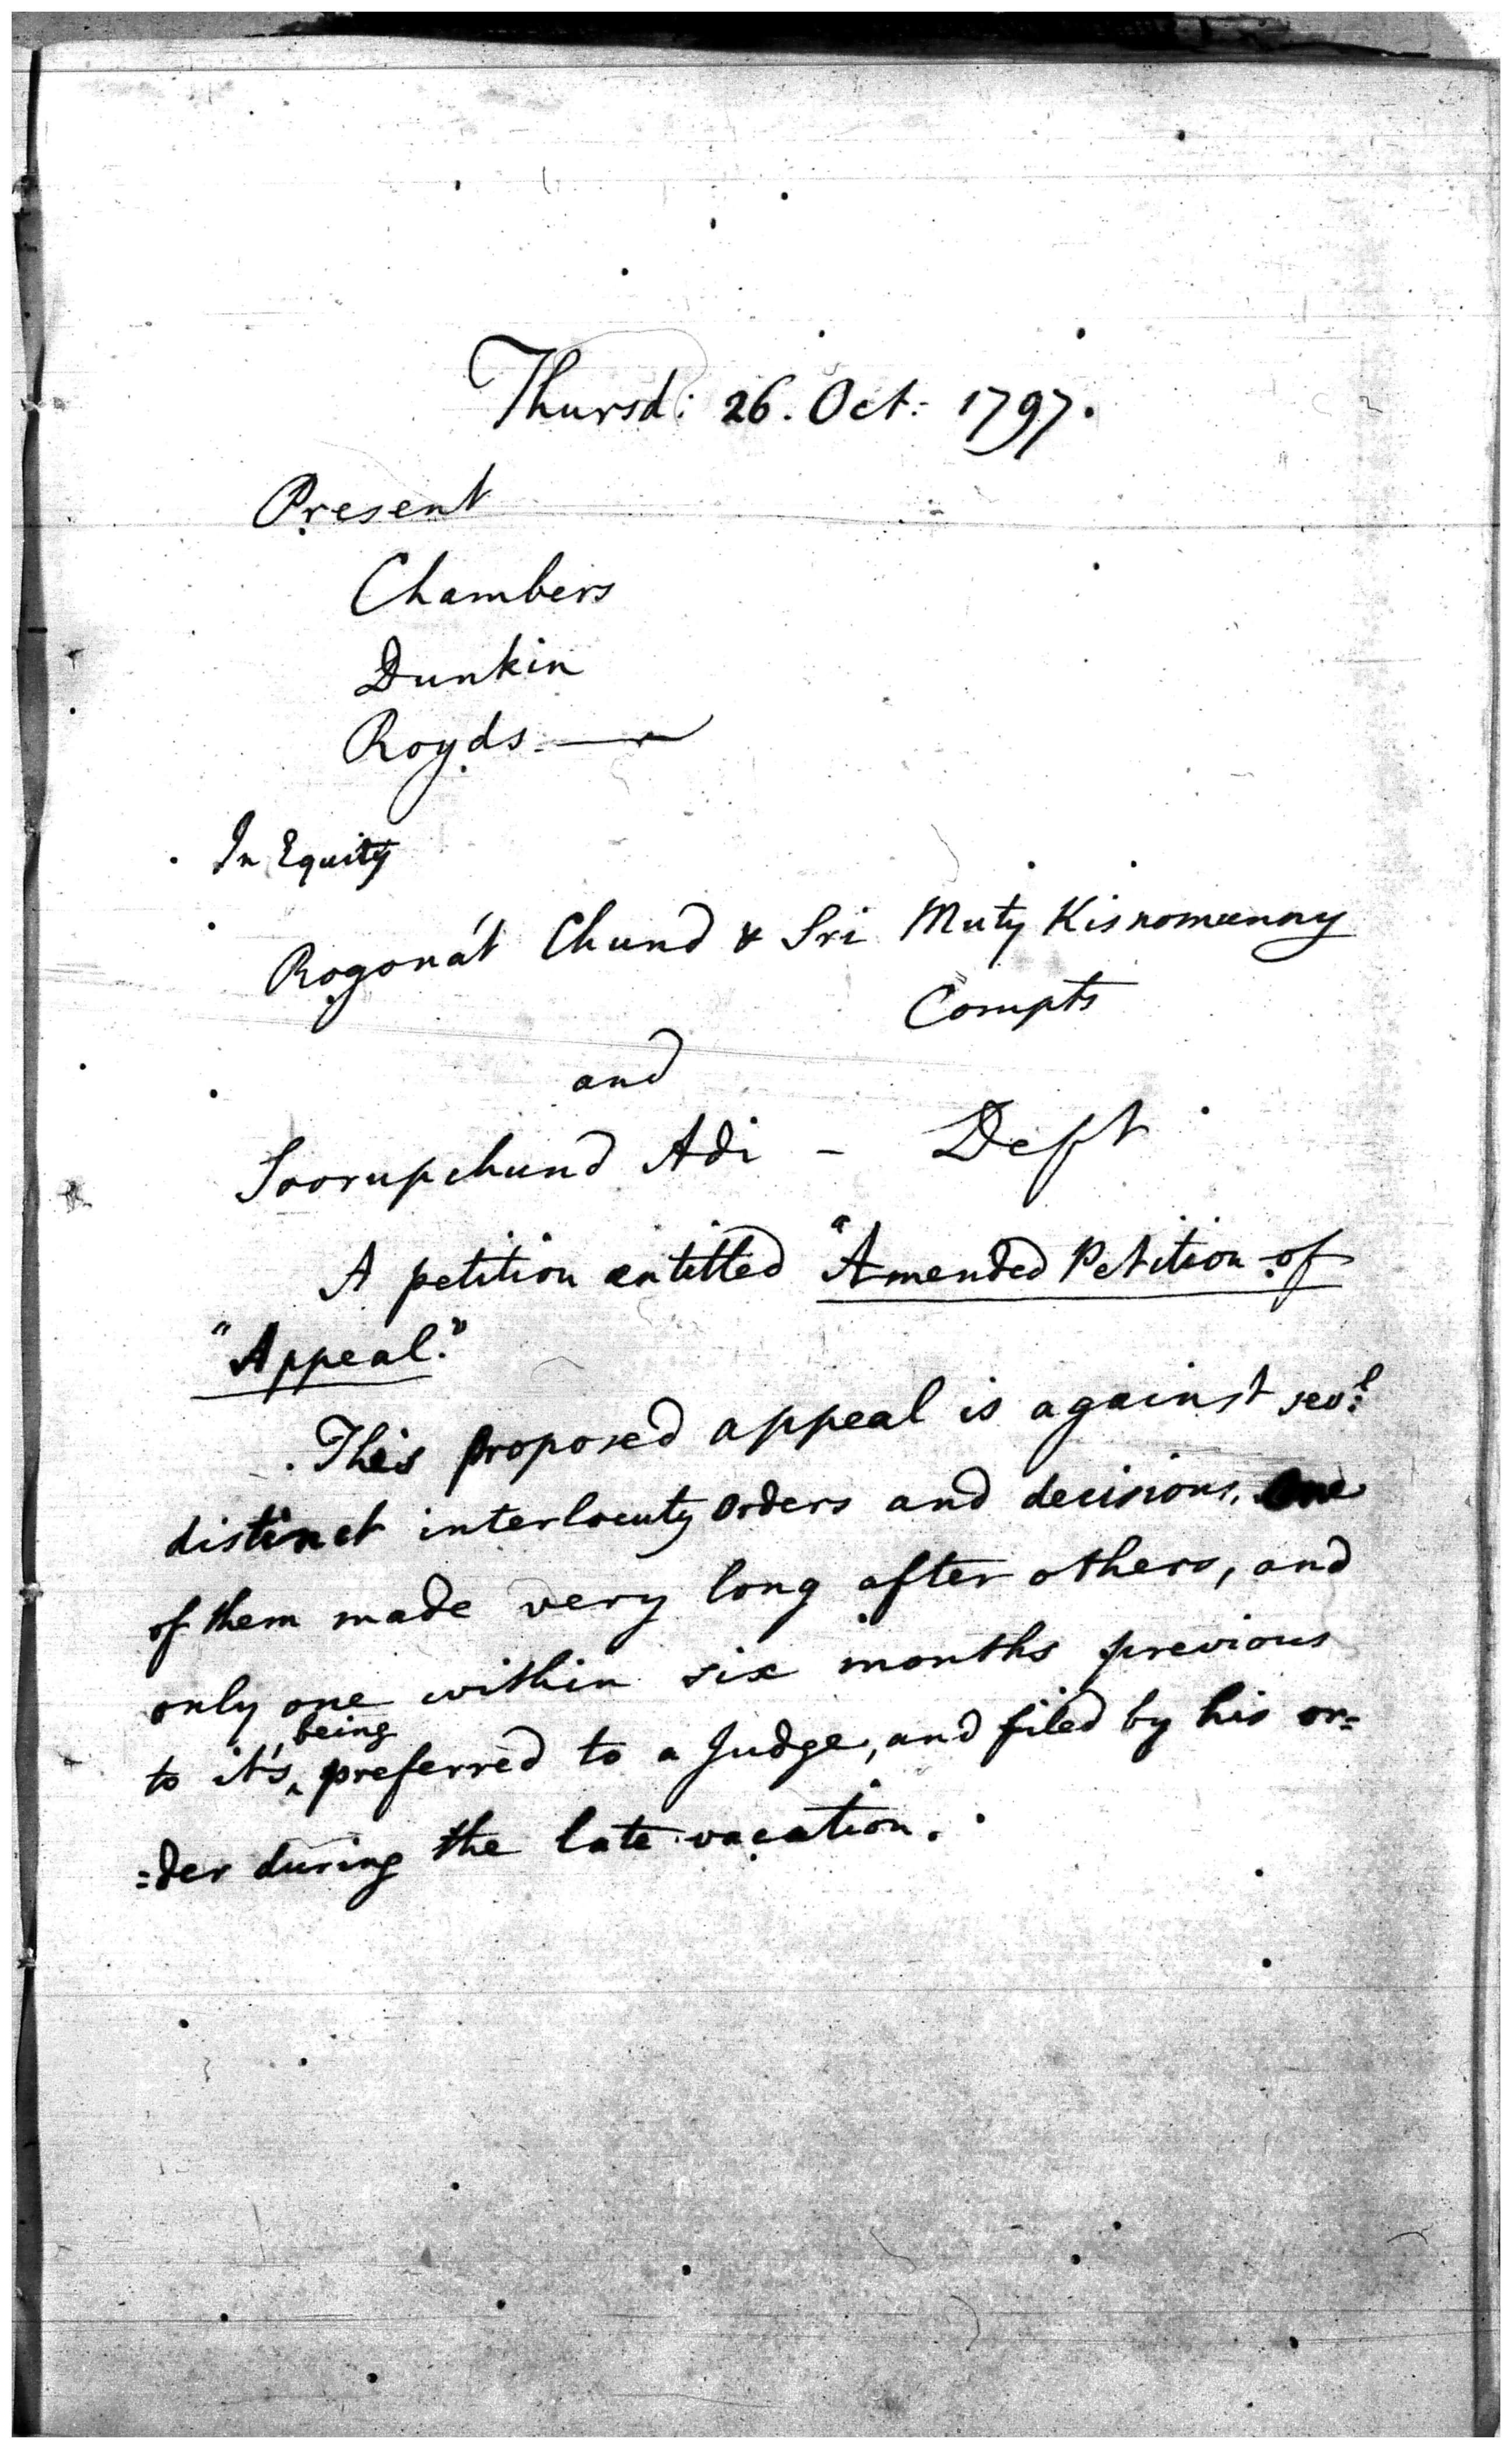 Thursd: 26. Oct: 1797.
Present
Chambers
Dunkin
Royds.
In Equity
Rogonát Chund & Sri Muty Kisnomunny
Compts
and
Soorupchund Adi - Deft
A petition entitled "Amended Petition of
"Appeal."
This proposed appeal is against sevl:
distinct interlocuty orders and decisions, one
of them made very long after others, and
only one within six months previous
to it's being preferred to a Judge, and filed by his or=
=der during the late vacation.